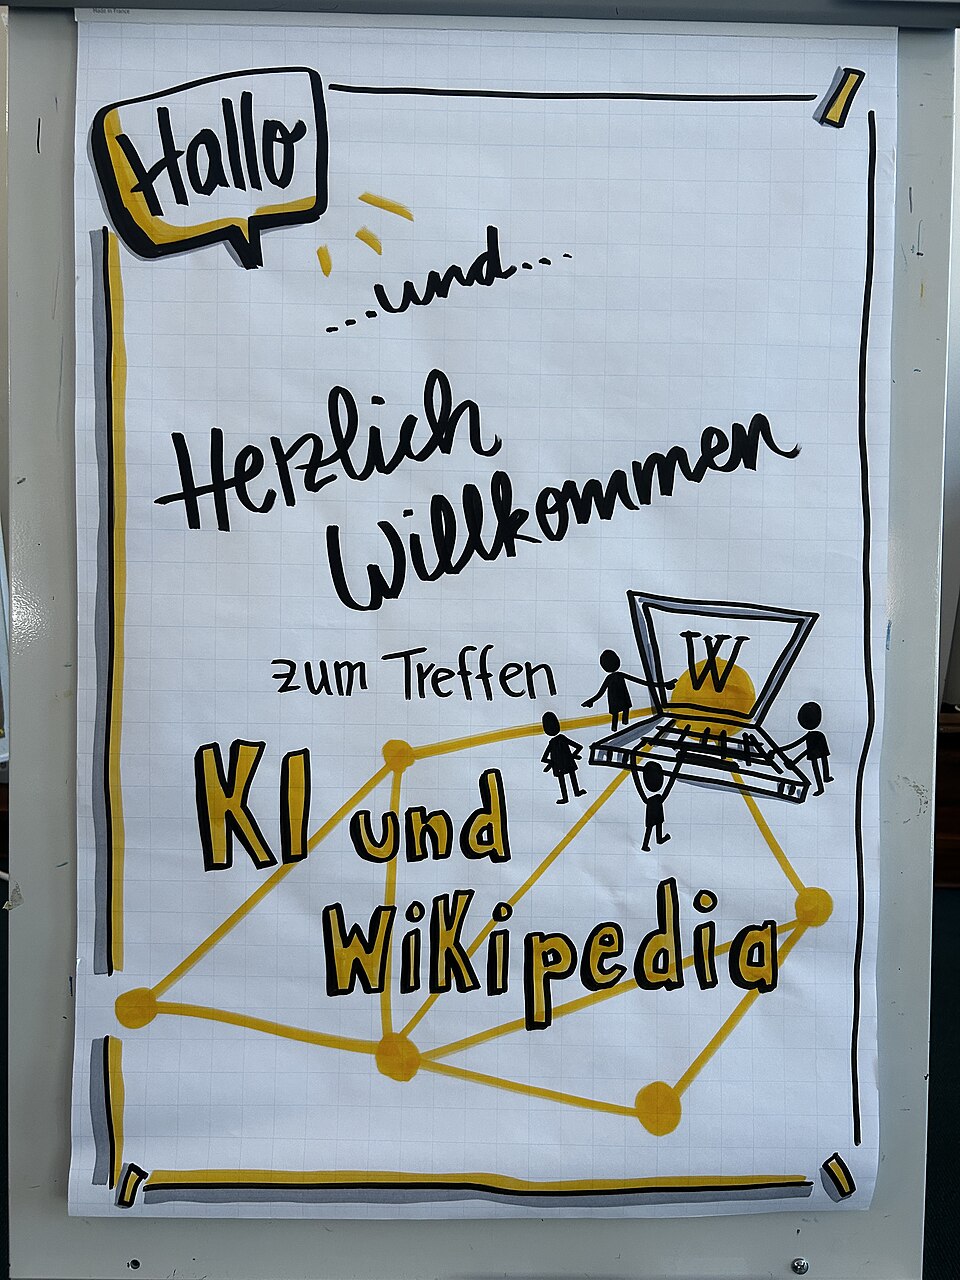 Made in France
Hallo
...und...
Herzlich
Willkommen
zum Treffen
W
KI und
WiKipedia